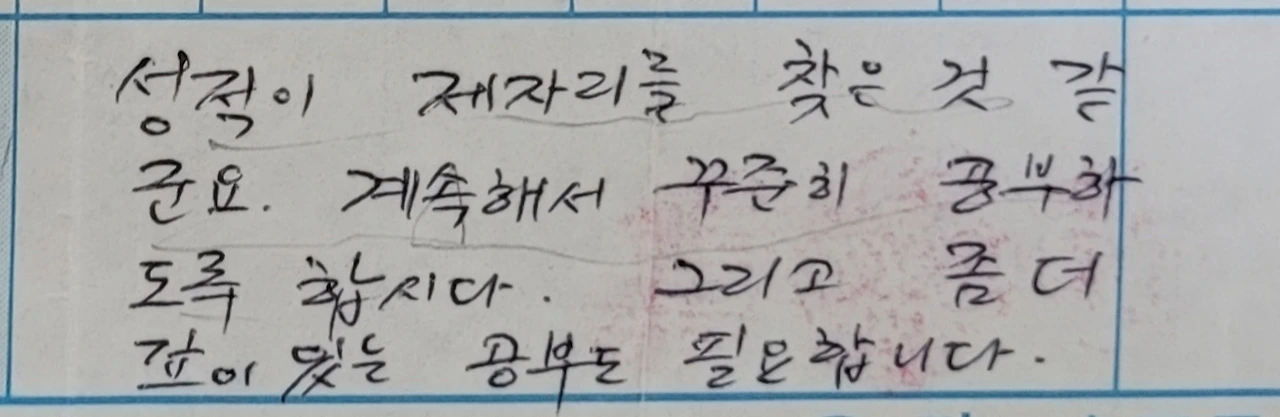 성적이 제자리를 찾은 것 같
군요. 계속해서 꾸준히 공부하
도록 합시다. 그리고 좀 더
깊이 있는 공부도 필요합니다.